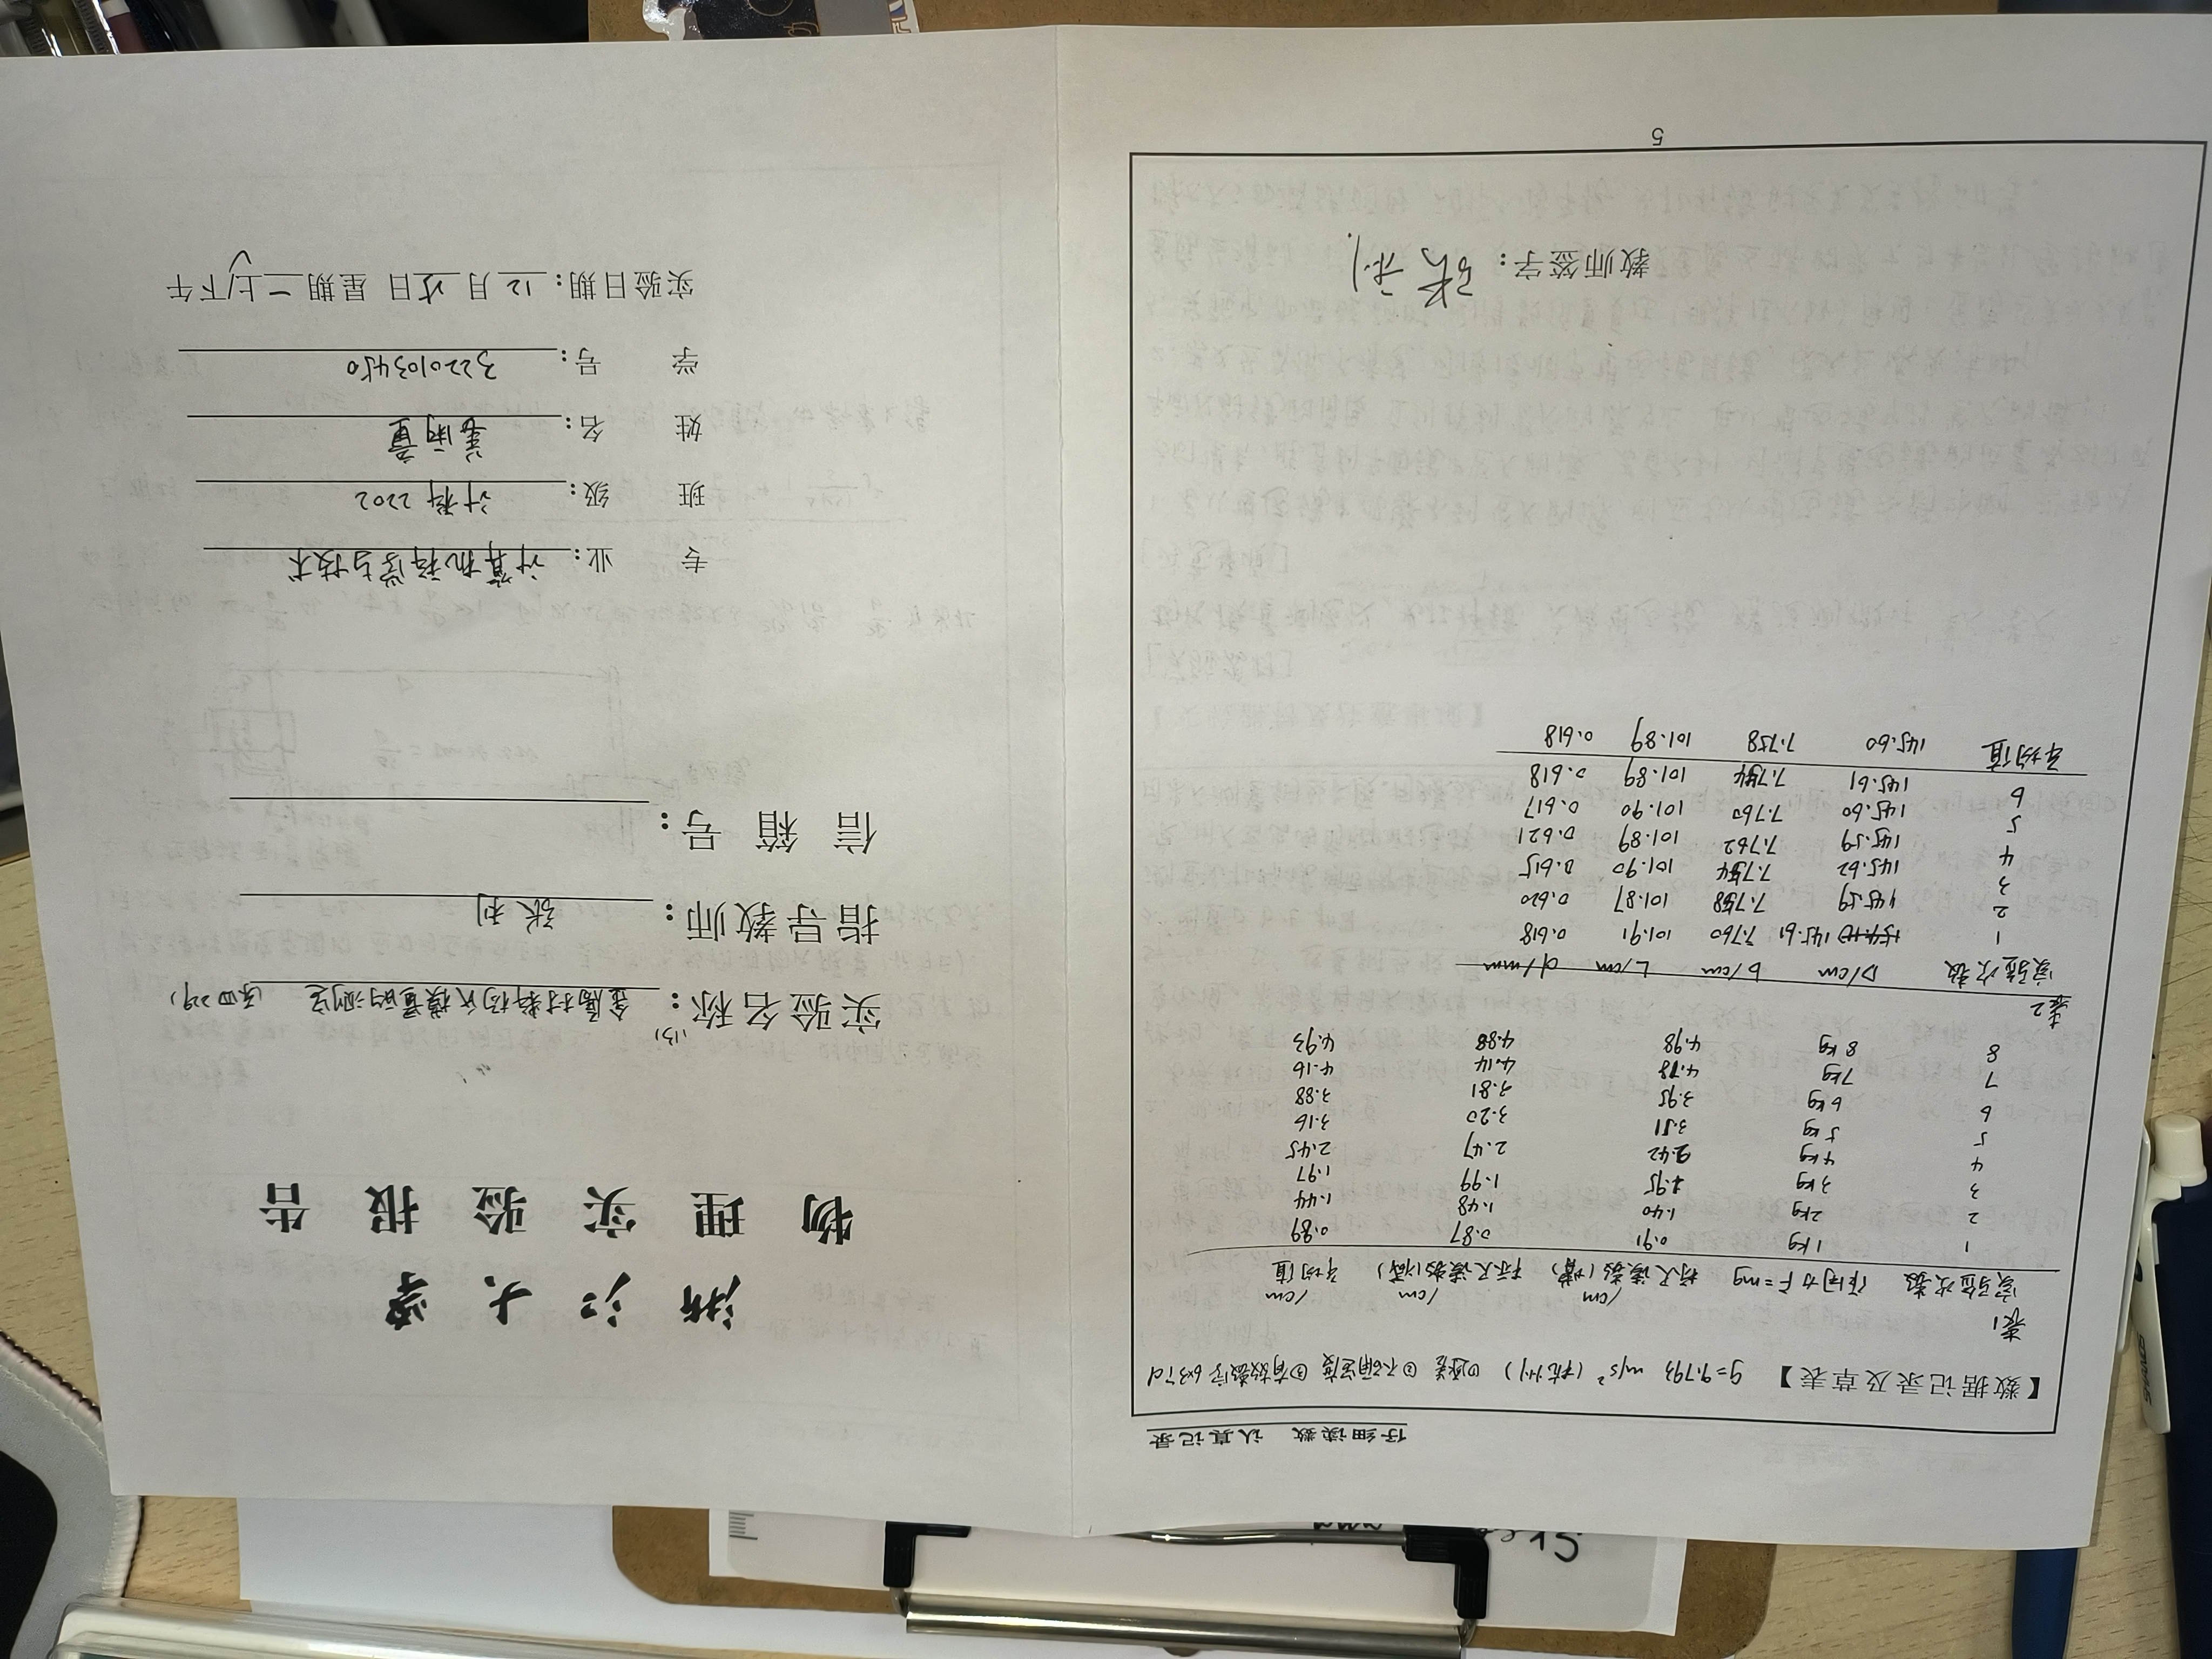 仔细读数 认真记录
【数据记录及草表】 g=9.793 m/s² (杭州) ①逐差 ②不确定度 ③有效数字 6×3个d
表1
实验次数 作用力F=mg 标尺读数(增)/cm 标尺读数(减)/cm 平均值/cm
1 1kg 0.91 0.87 0.89
2 2kg 1.40 1.48 1.44
3 3kg 1.95 1.99 1.97
4 4kg 2.42 2.47 2.45
5 5kg 3.11 3.20 3.16
6 6kg 3.95 3.81 3.88
7 7kg 4.18 4.14 4.16
8 8kg 4.98 4.88 4.93
表2
实验次数 D/cm b/cm L/cm d/mm
1 154.10 145.61 7.760 101.91 0.618
2 145.59 7.758 101.87 0.620
3 145.62 7.754 101.90 0.615
4 145.59 7.762 101.89 0.621
5 145.60 7.760 101.90 0.617
6 145.61 7.754 101.89 0.618
平均值 145.60 7.758 101.89 0.618
教师签字: 张利
5
浙江大学
物理实验报告
实验名称: (13) 金属材料杨氏模量的测定 (东四229)
指导教师: 张利
信箱号:
专业: 计算机科学与技术
班级: 计科2202
姓名: 姜雨童
学号: 3220103450
实验日期: 12月25日 星期一上/下午